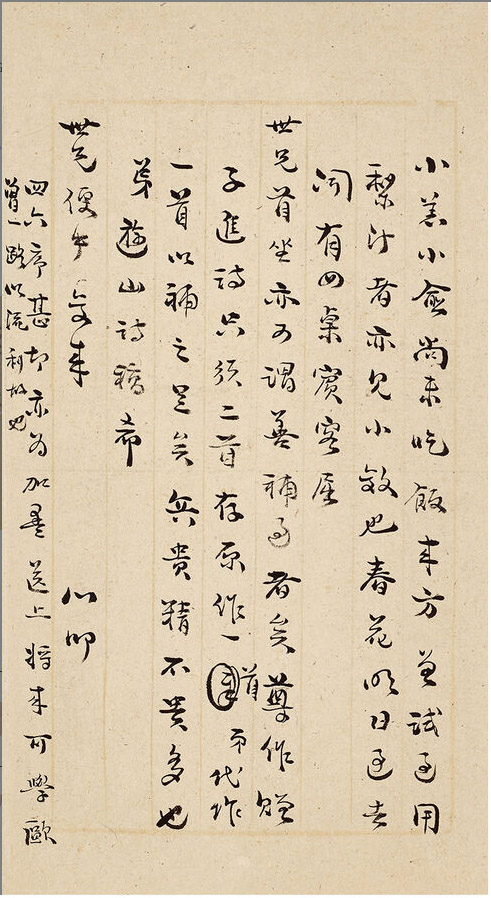 小恙小愈尚未吃飯来方試過用
梨汁者亦見小效也春花明日送去
闻有四桌賓客屈
世兄首坐亦可謂善補過者矣尊作贈
子進詩只須二首存原作一首弟代作
一首以補之足矣兵貴精不貴多也
弟遊山詩稿希
世兄便中交来 心叩
四六序甚切亦为加墨送上将来可學歐
曾一路以流利故也